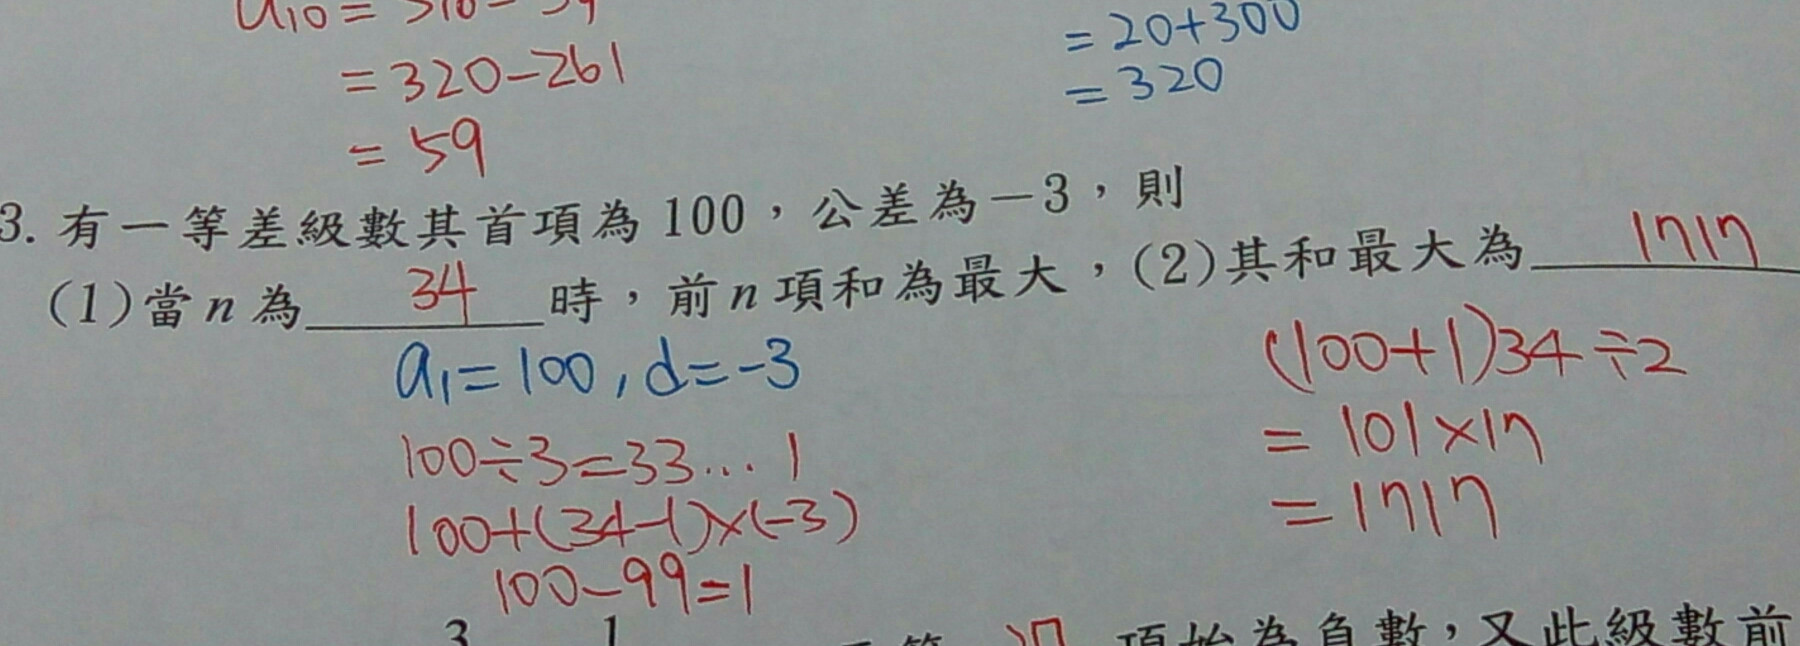 = 20+300
= 320-261
= 320
= 59
3. 有一等差級數其首項為 100，公差為－3，則
(1)當 n 為 34 時，前 n 項和為最大，(2)其和最大為 1717
a₁=100, d=-3
(100+1)34÷2
100÷3=33...1
= 101×17
100+(34-1)×(-3)
= 1717
100-99=1
項始為負數，又此級數前